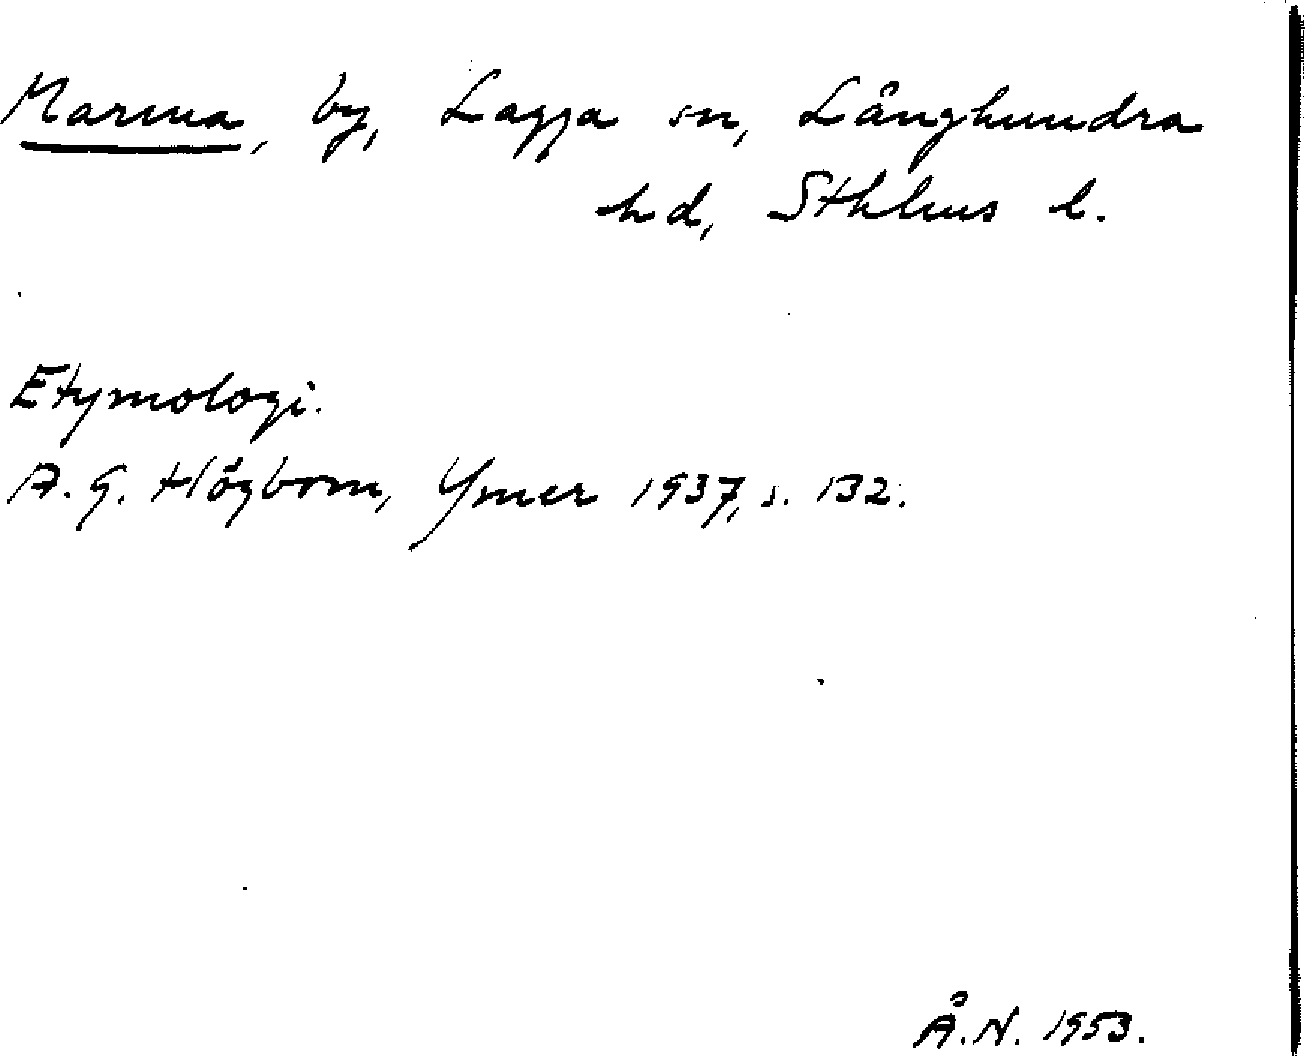 Marma, by, Lagga sn, Långhundra
hd, Sthlms l.
Etymologi.
A. G. Högbom, Ymer 1937, s. 132.
Å.N. 1953.